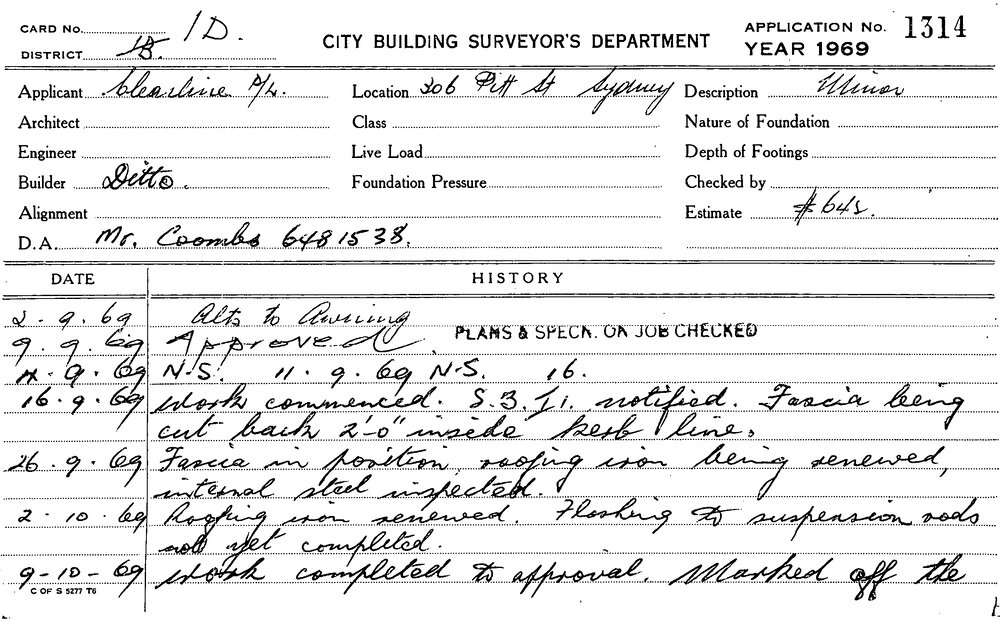 CARD No. 1D.
DISTRICT 1B.
CITY BUILDING SURVEYOR'S DEPARTMENT
APPLICATION No. 1314
YEAR 1969
Applicant Clearline P/L. Location 306 Pitt St Sydney Description Minor
Architect Class Nature of Foundation
Engineer Live Load Depth of Footings
Builder Ditto. Foundation Pressure Checked by
Alignment Estimate
D.A. Mr. Coombs 6481538.
DATE HISTORY
2-9-69 Alts to Awning
9.9.69 Approved PLANS & SPECN. ON JOB CHECKED
9.69 N.S. 11.9.69 N.S. 16.
16.9.69 Work commenced. notified. Fascia being
cut back 2'-0" inside kerb line.
26.9.69 Fascia in position, roofing iron being renewed,
internal steel inspected.
2-10-69 Roofing iron renewed. Flashing to suspension rods
not yet completed.
9-10-69 Work completed to approval. Marked off the
C OF S 5277 T6